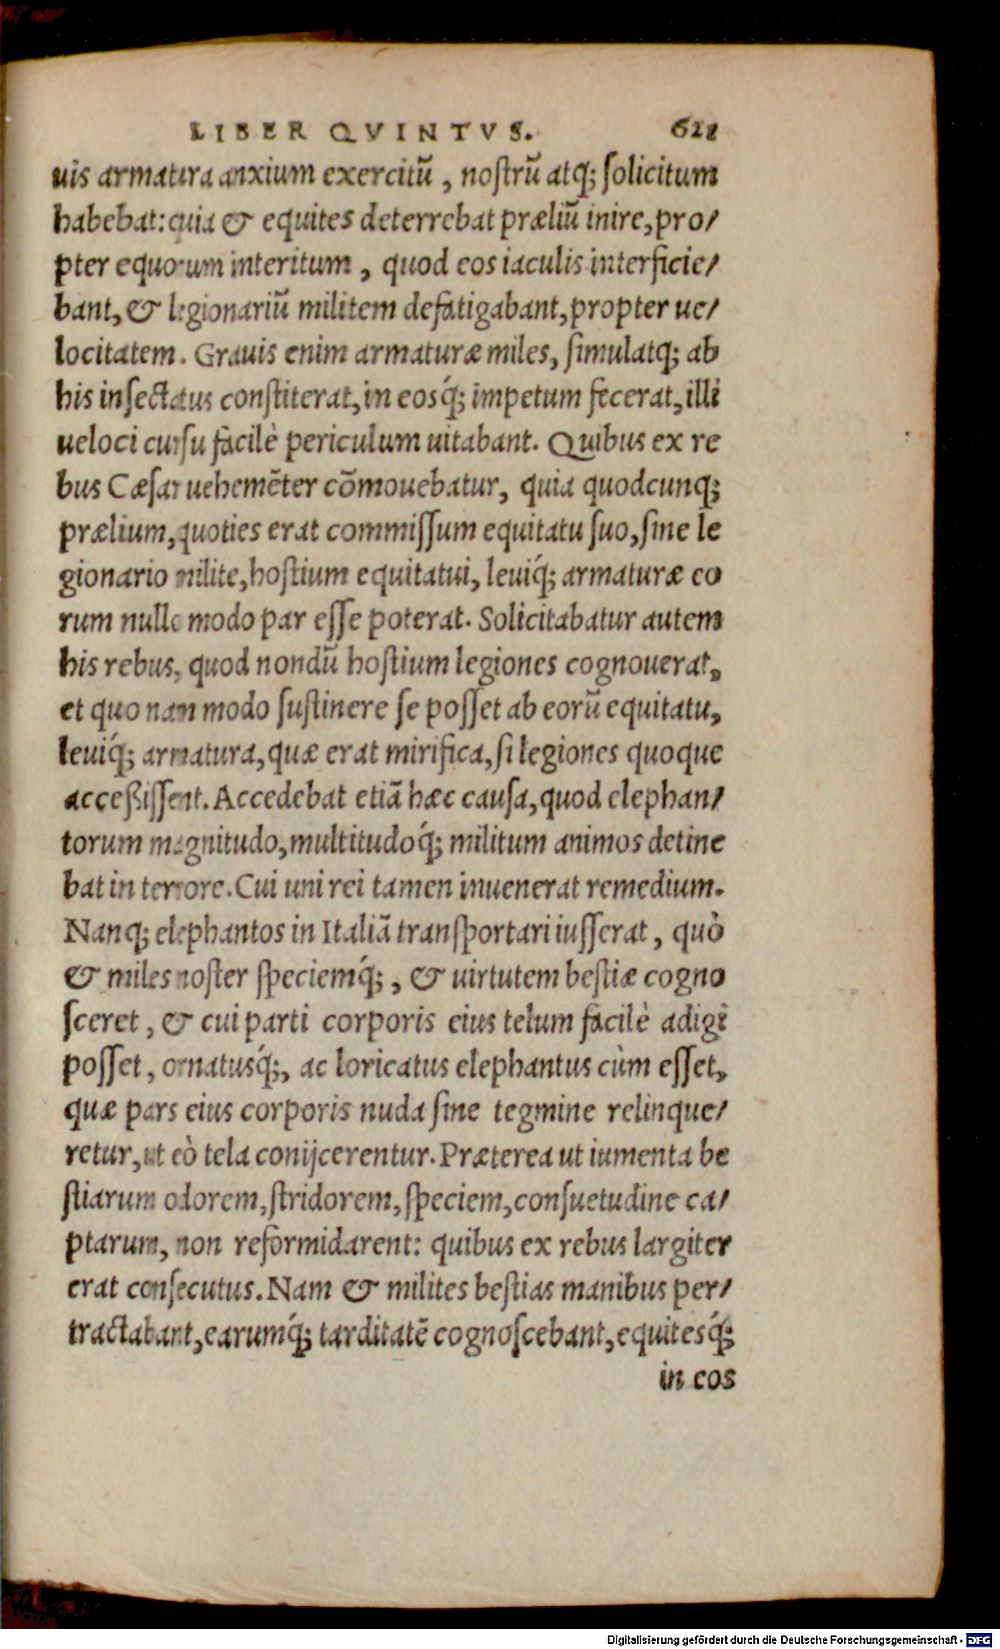 LIBER QVINTVS. 621
uis armatura anxium exercitũ, nostrũ atq; solicitum
habebat: quia & equites deterrebat præliũ inire, pro/
pter equorum interitum, quod eos iaculis interficie/
bant, & legionariũ militem defatigabant, propter ue/
locitatem. Grauis enim armaturæ miles, simulatq; ab
his insectatus constiterat, in eosq́; impetum fecerat, illi
ueloci cursu facilè periculum uitabant. Quibus ex re
bus Cæsar uehemẽter cõmouebatur, quia quodcunq;
prælium, quoties erat commissum equitatu suo, sine le
gionario milite, hostium equitatui, leuiq́; armaturæ eo
rum nullo modo par esse poterat. Solicitabatur autem
his rebus, quod nondũ hostium legiones cognouerat,
et quo nam modo sustinere se posset ab eorũ equitatu,
leuiq́; armatura, quæ erat mirifica, si legiones quoque
acceßissent. Accedebat etiã hæc causa, quod elephan/
torum magnitudo, multitudoq́; militum animos detine
bat in terrore. Cui uni rei tamen inuenerat remedium.
Nanq; elephantos in Italiã transportari iusserat, quò
& miles noster speciemq́;, & uirtutem bestiæ cogno
sceret, & cui parti corporis eius telum facilè adigi
posset, ornatusq́;, ac loricatus elephantus cùm esset,
quæ pars eius corporis nuda sine tegmine relinque/
retur, ut eò tela conijcerentur. Præterea ut iumenta be
stiarum odorem, stridorem, speciem, consuetudine ca/
ptarum, non reformidarent: quibus ex rebus largiter
erat consecutus. Nam & milites bestias manibus per/
tractabant, earumq́; tarditatẽ cognoscebant, equitesq́;
in eos
Digitalisierung gefördert durch die Deutsche Forschungsgemeinschaft - DFG